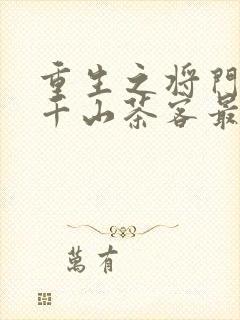 重生之将门
千山茶客最
萬有